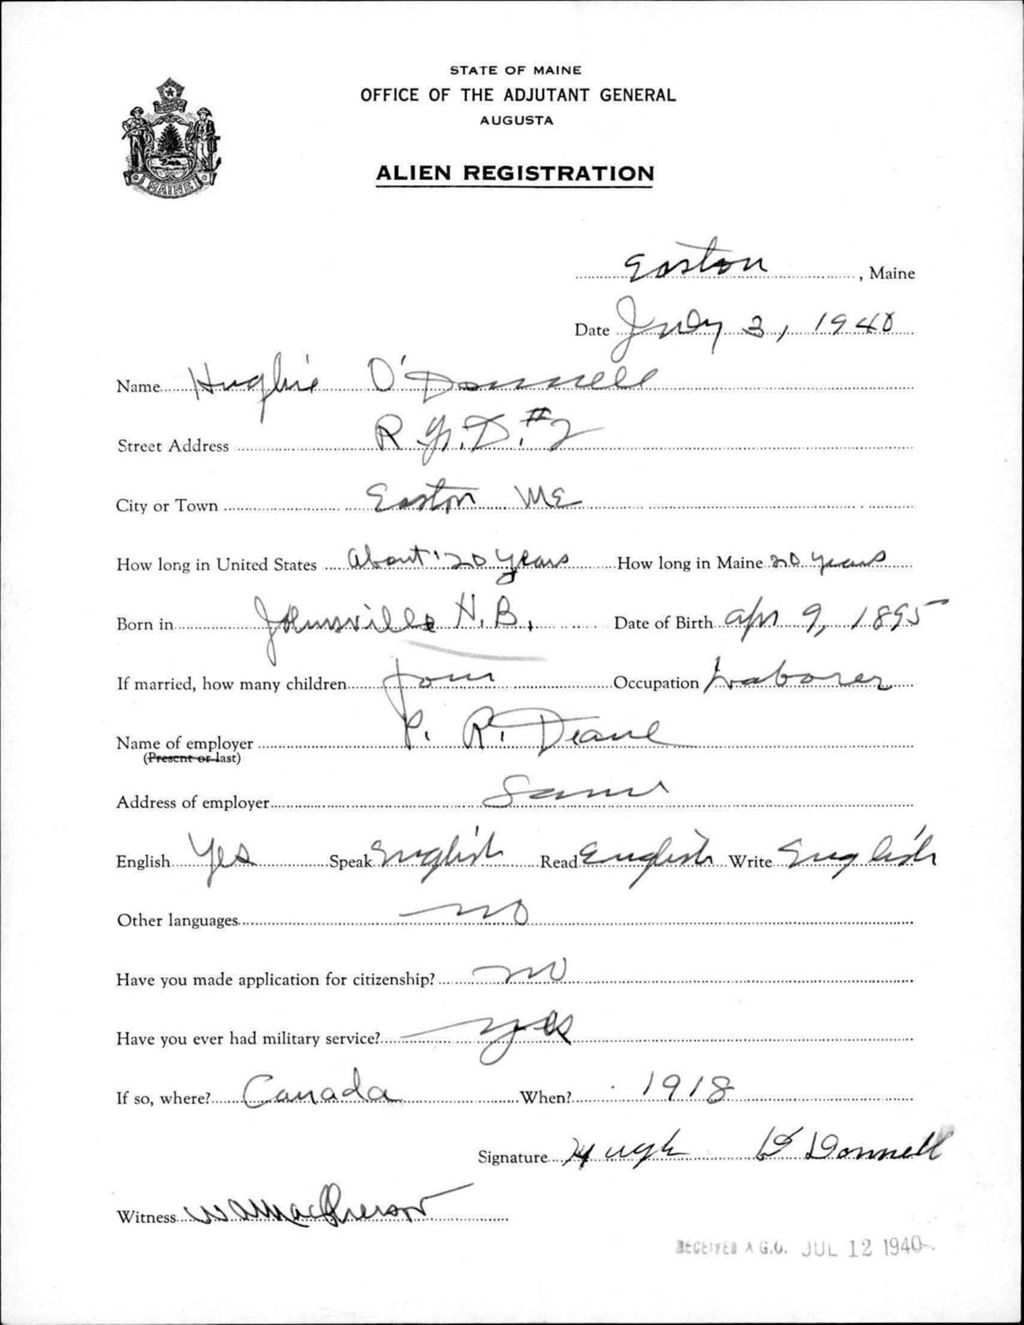 STATE OF MAINE
OFFICE OF THE ADJUTANT GENERAL
AUGUSTA
ALIEN REGISTRATION
MAINE
Easton, Maine
Date July 3, 1940
Name Hughie O'Donnell
Street Address R.F.D. #2
City or Town Easton Me
How long in United States About 20 years How long in Maine 20 years
Born in Johnsville N.B. Date of Birth Apr 9, 1895
If married, how many children four Occupation Laborer
Name of employer P. R. Deane
(Present or last)
Address of employer Same
English Yes Speak English Read English Write English
Other languages no
Have you made application for citizenship? no
Have you ever had military service? yes
If so, where? Canada When? 1918
Signature Hugh O'Donnell
Witness
RECEIVED A.G.O. JUL 12 1940